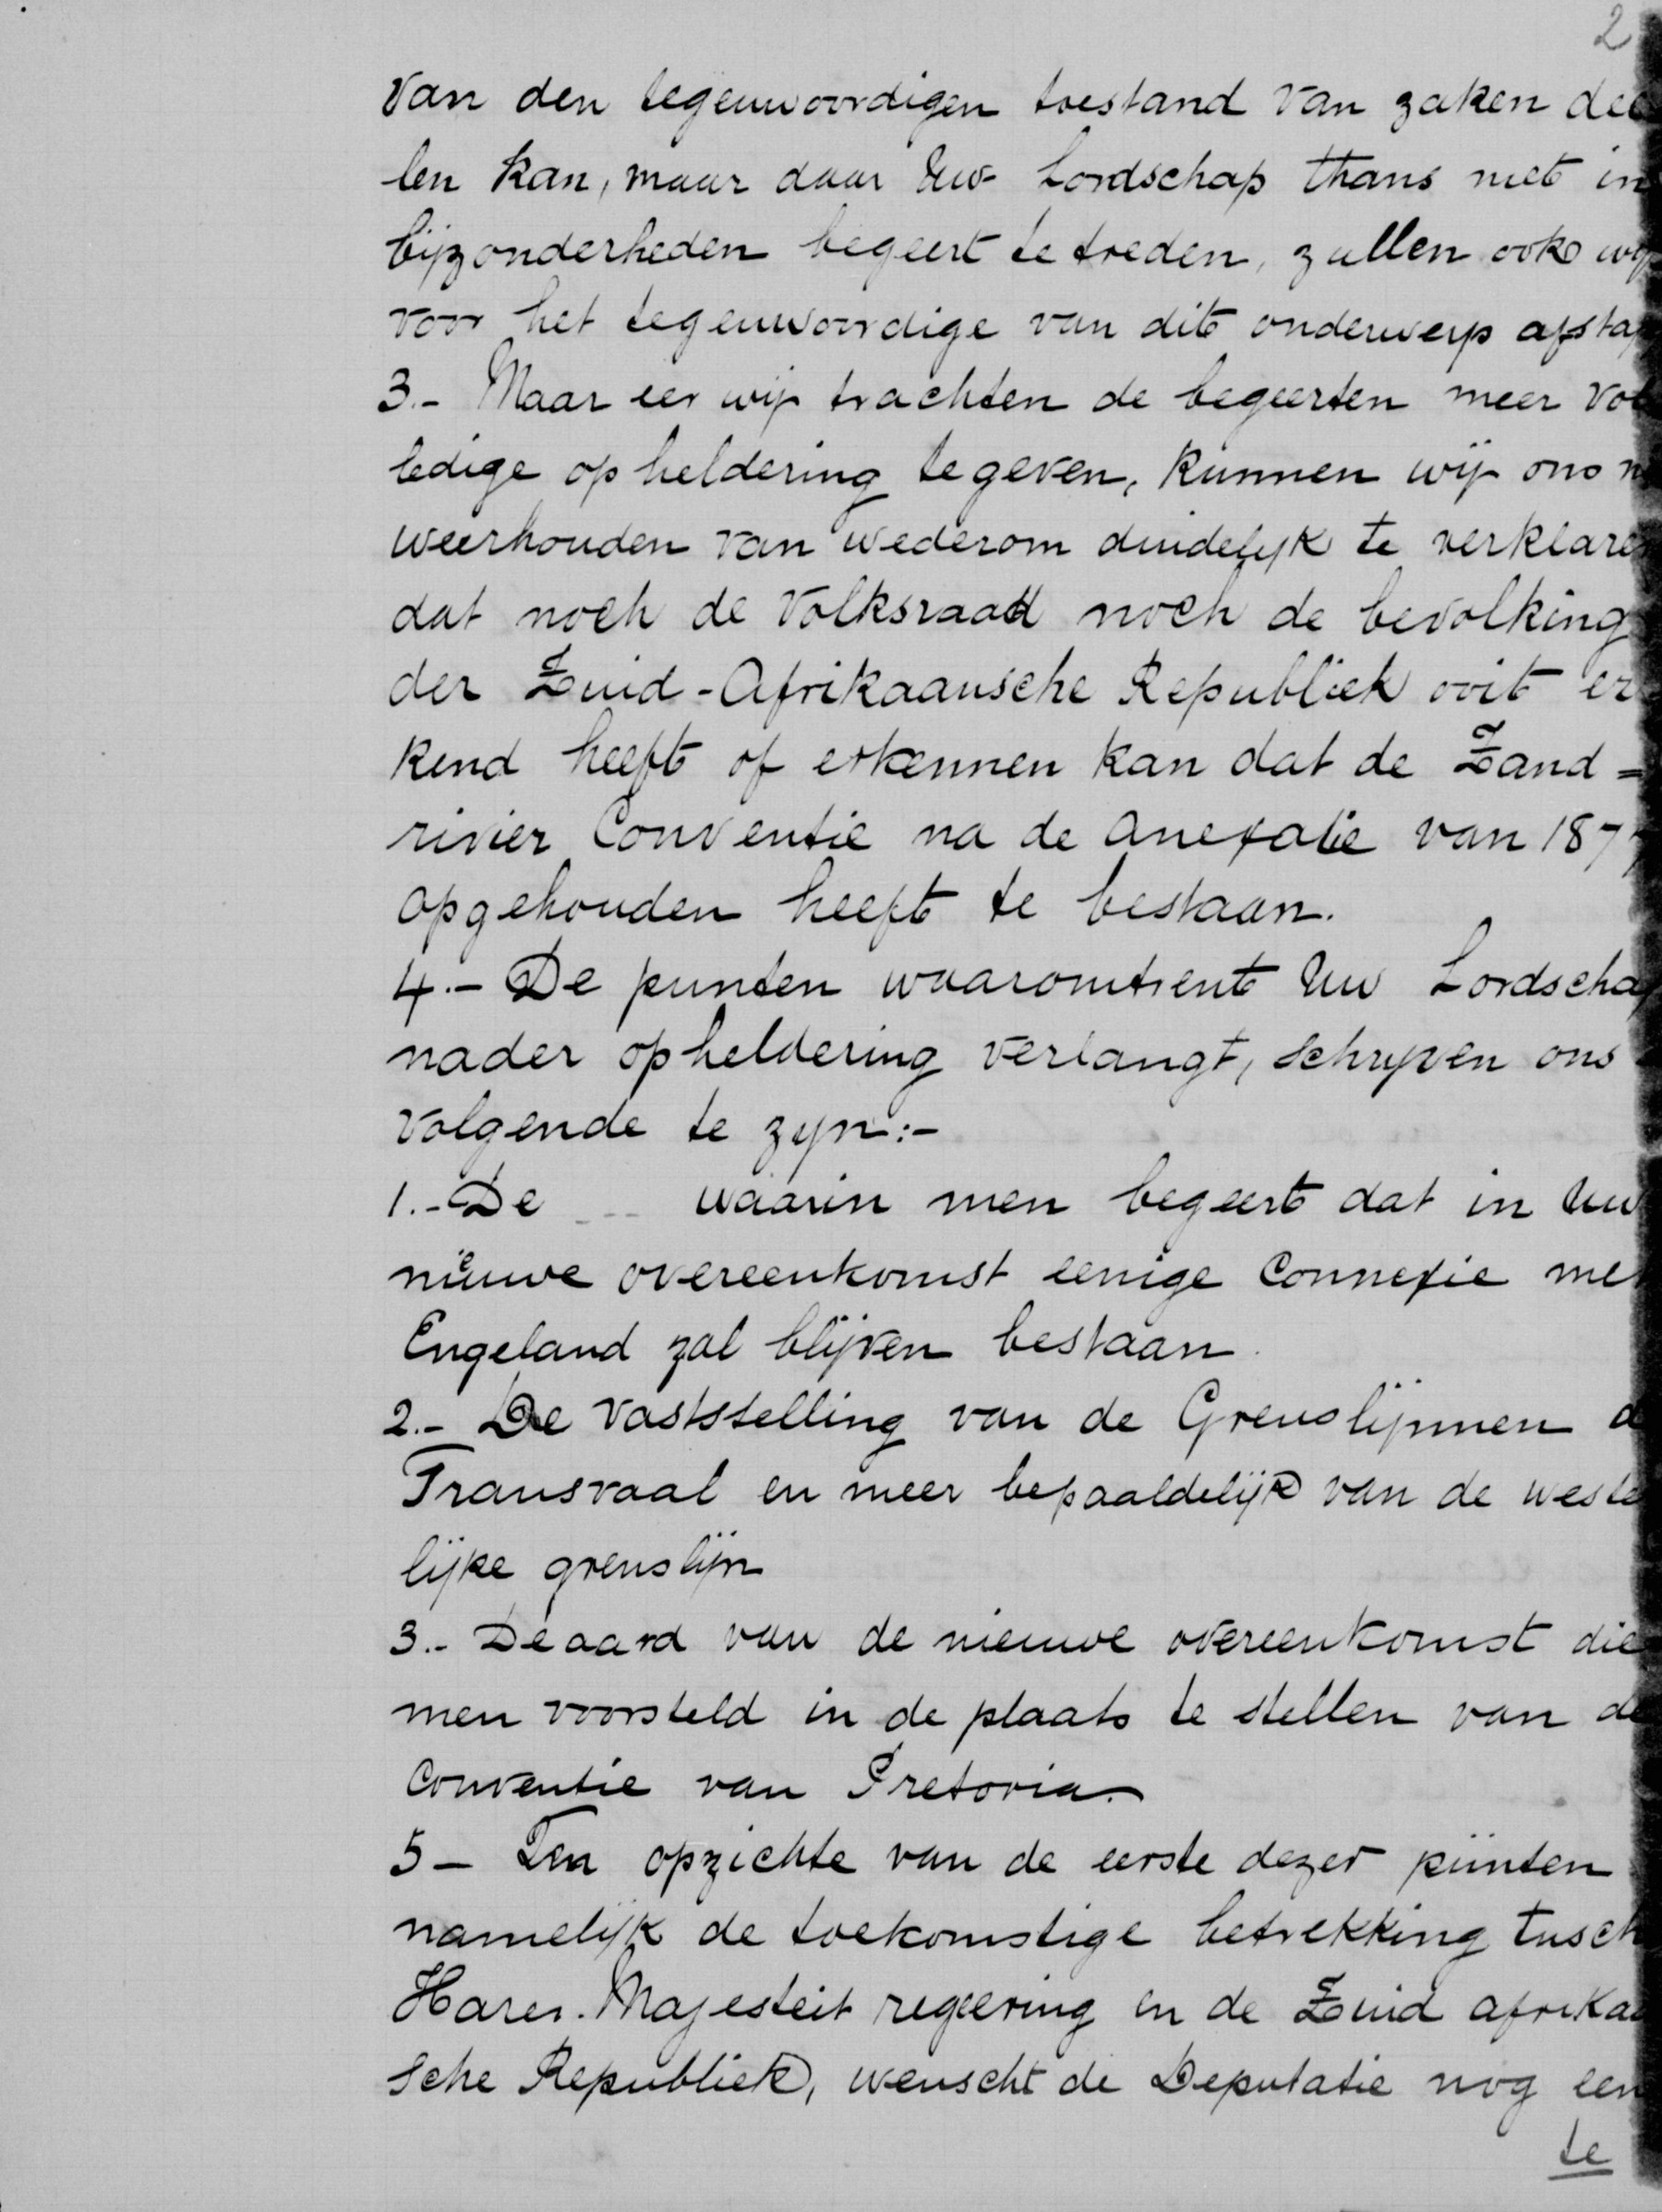 2
van den tegenwoordigen toestand van zaken dee
len kan, maar daar Uw Lordschap thans niet in
bijzonderheden begeert te treden, zullen ook wij
voor het tegenwoordige van dit onderwerp afstap
3.- Maar eer wij trachten de begeerten meer vol
ledige opheldering te geven, kunnen wij ons n
weerhouden van wederom duidelijk te verklaren
dat noch de Volksraad noch de bevolking
der Zuid-Afrikaansche Republiek ooit er
kend heeft of erkennen kan dat de Zand=
rivier Conventie na de anexatie van 1877
opgehouden heeft te bestaan.
4.- De punten waaromtrent Uw Lordschap
nader opheldering verlangt, schijnen ons
volgende te zyn:-
1.- De ... waarin men begeert dat in Uw
nieuwe overeenkomst eenige Connexie met
Engeland zal blijven bestaan.
2.- De vaststelling van de Grenslijnen d
Transvaal en meer bepaaldelijk van de weste
lijke grenslijn
3.- De aard van de nieuwe overeenkomst die
men voorsteld in de plaats te stellen van de
Conventie van Pretoria.
5 - Ten opzichte van de eerste dezer punten
namelijk de toekomstige betrekking tusch
Harer. Majesteit regeering en de Zuid afrikaa
sche Republiek, wenscht de Deputatie nog een
te